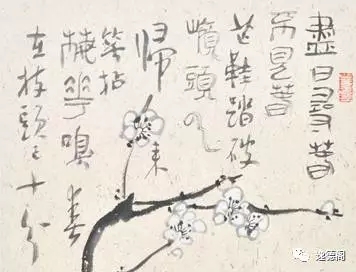 盡日尋春
不見春
芒鞋踏破
嶺頭
帰來
笑拈
嗅春
在枝頭已十分
逸德閣